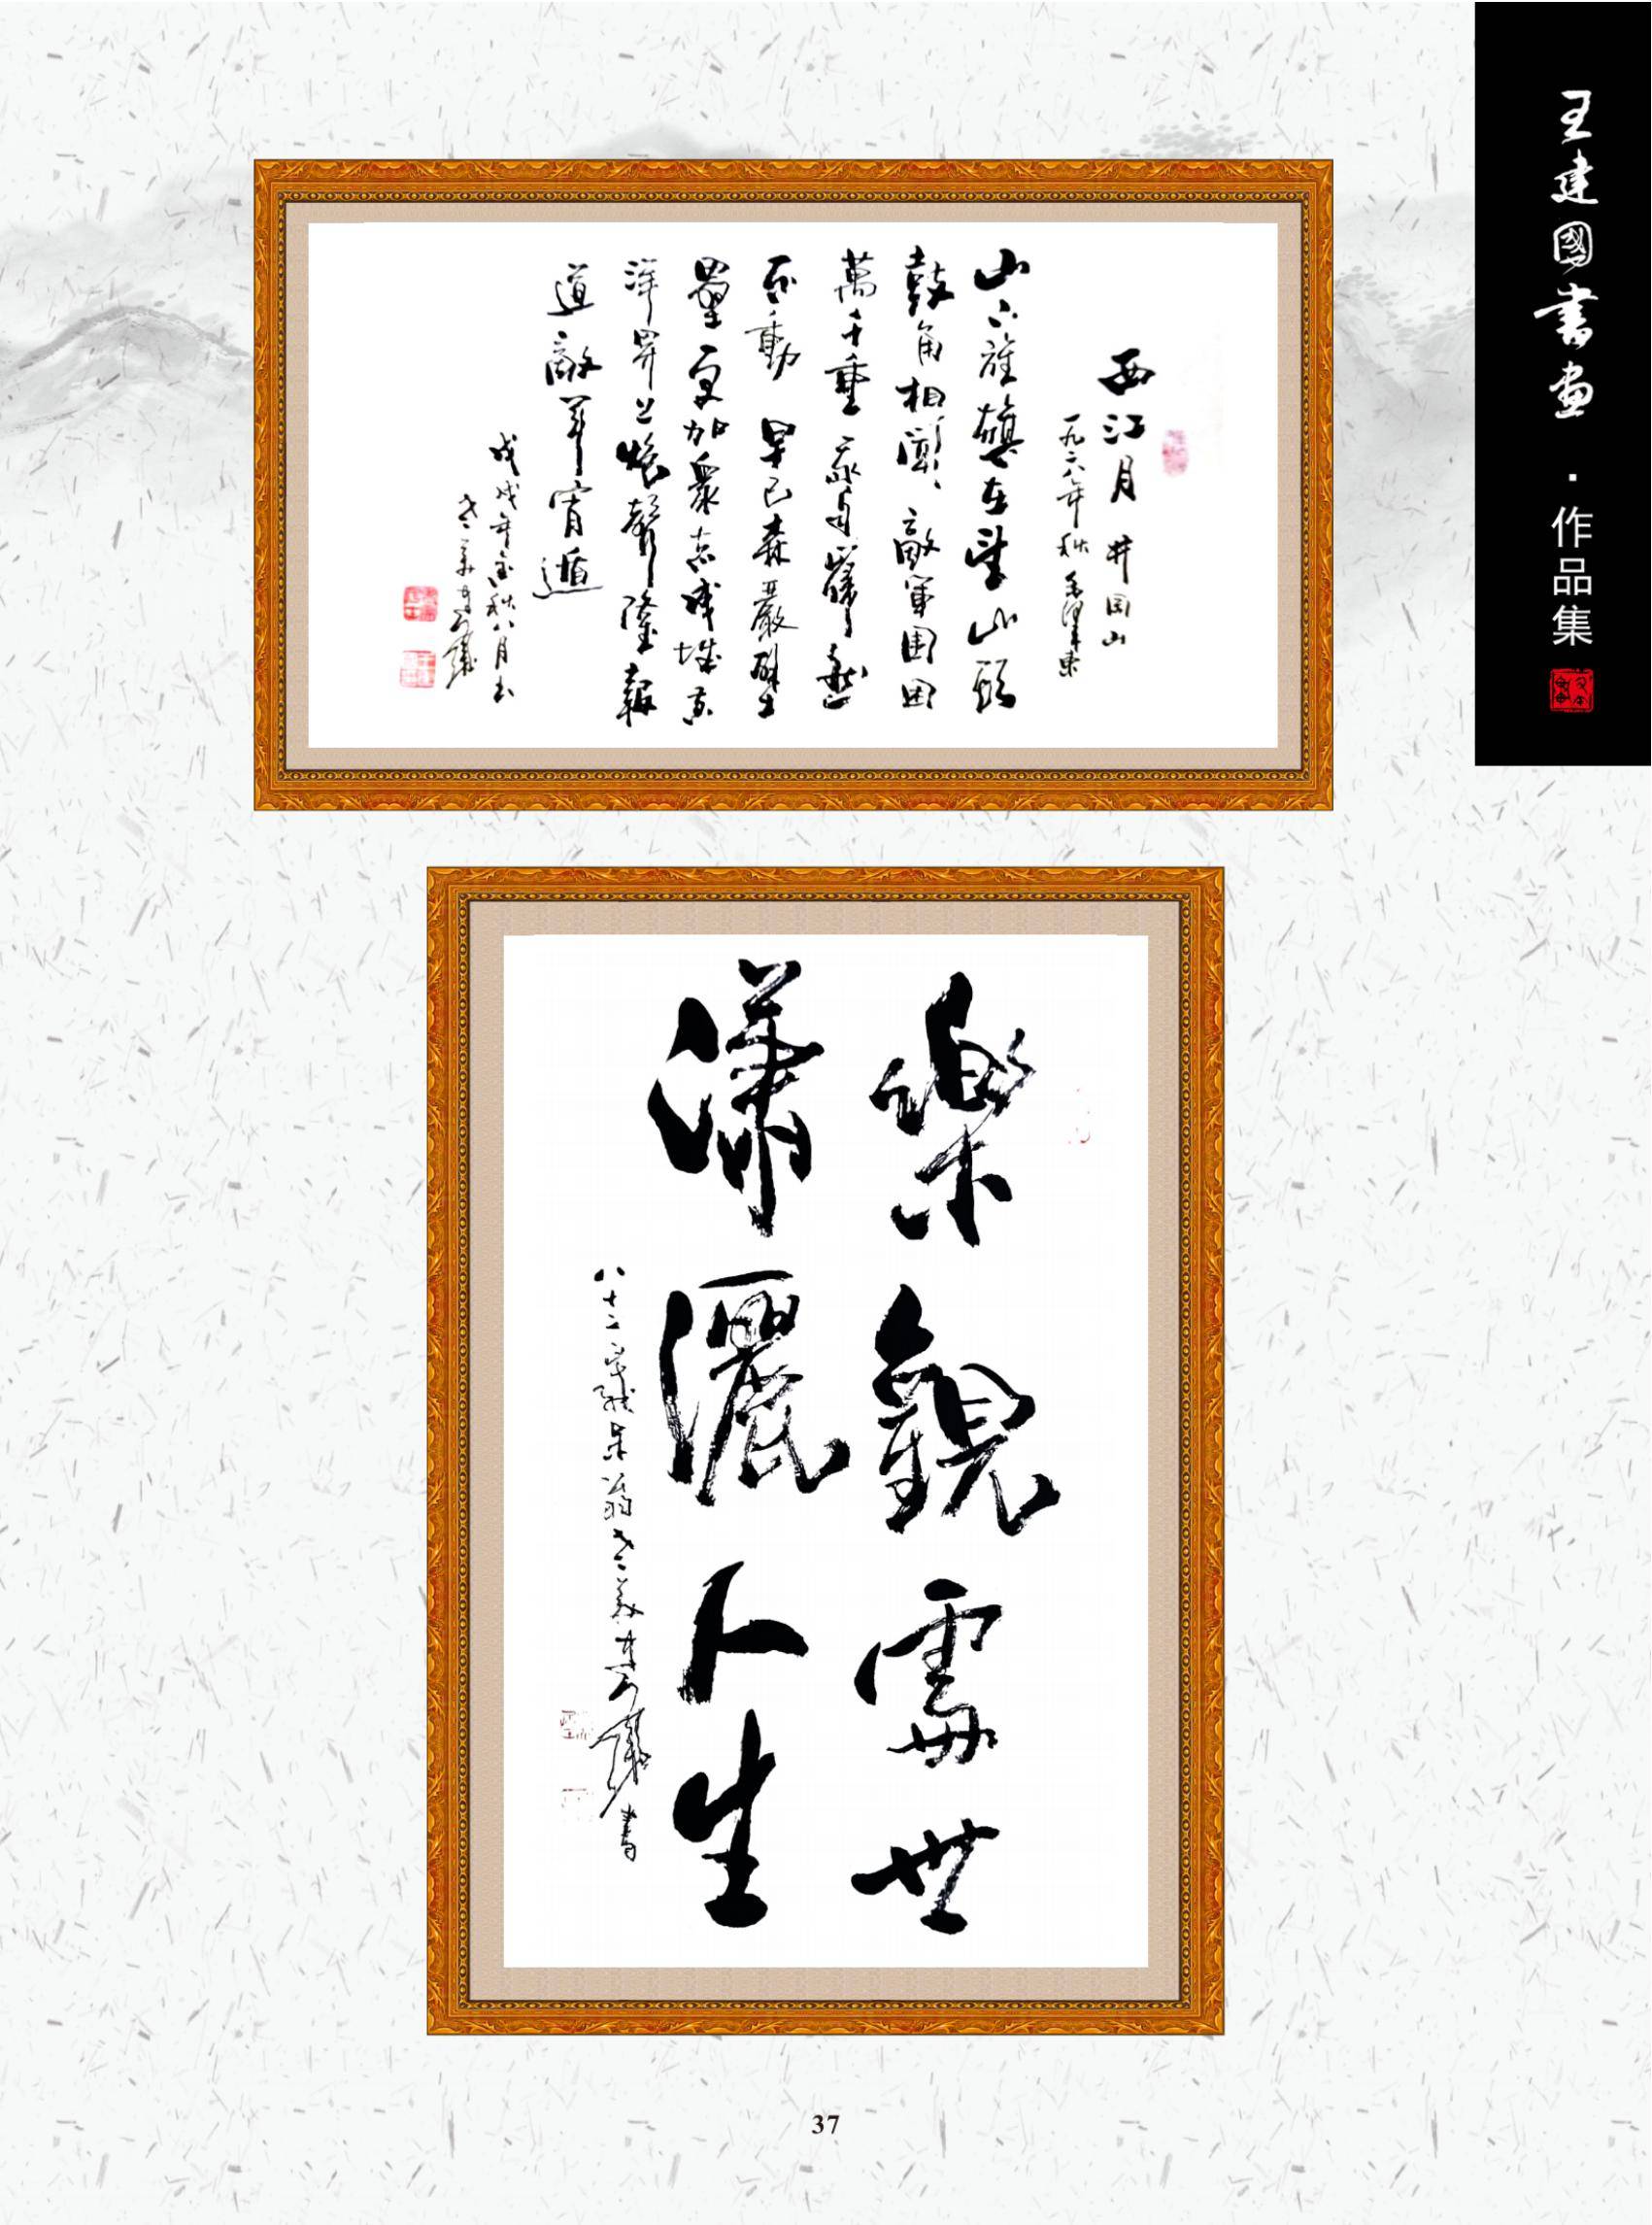 王建國書畫·作品集
西江月 井岡山
一九二八年秋 毛澤東
山下旌旗在望山頭
鼓角相聞、敵軍圍困
萬千重 我自巋然
不動 早已森嚴壁
壘更加衆志成城黄
洋界上炮聲隆報
道敵軍宵遁
戊戌年金秋八月書
樂觀處世
瀟灑人生
八十二歲
翁
書
37